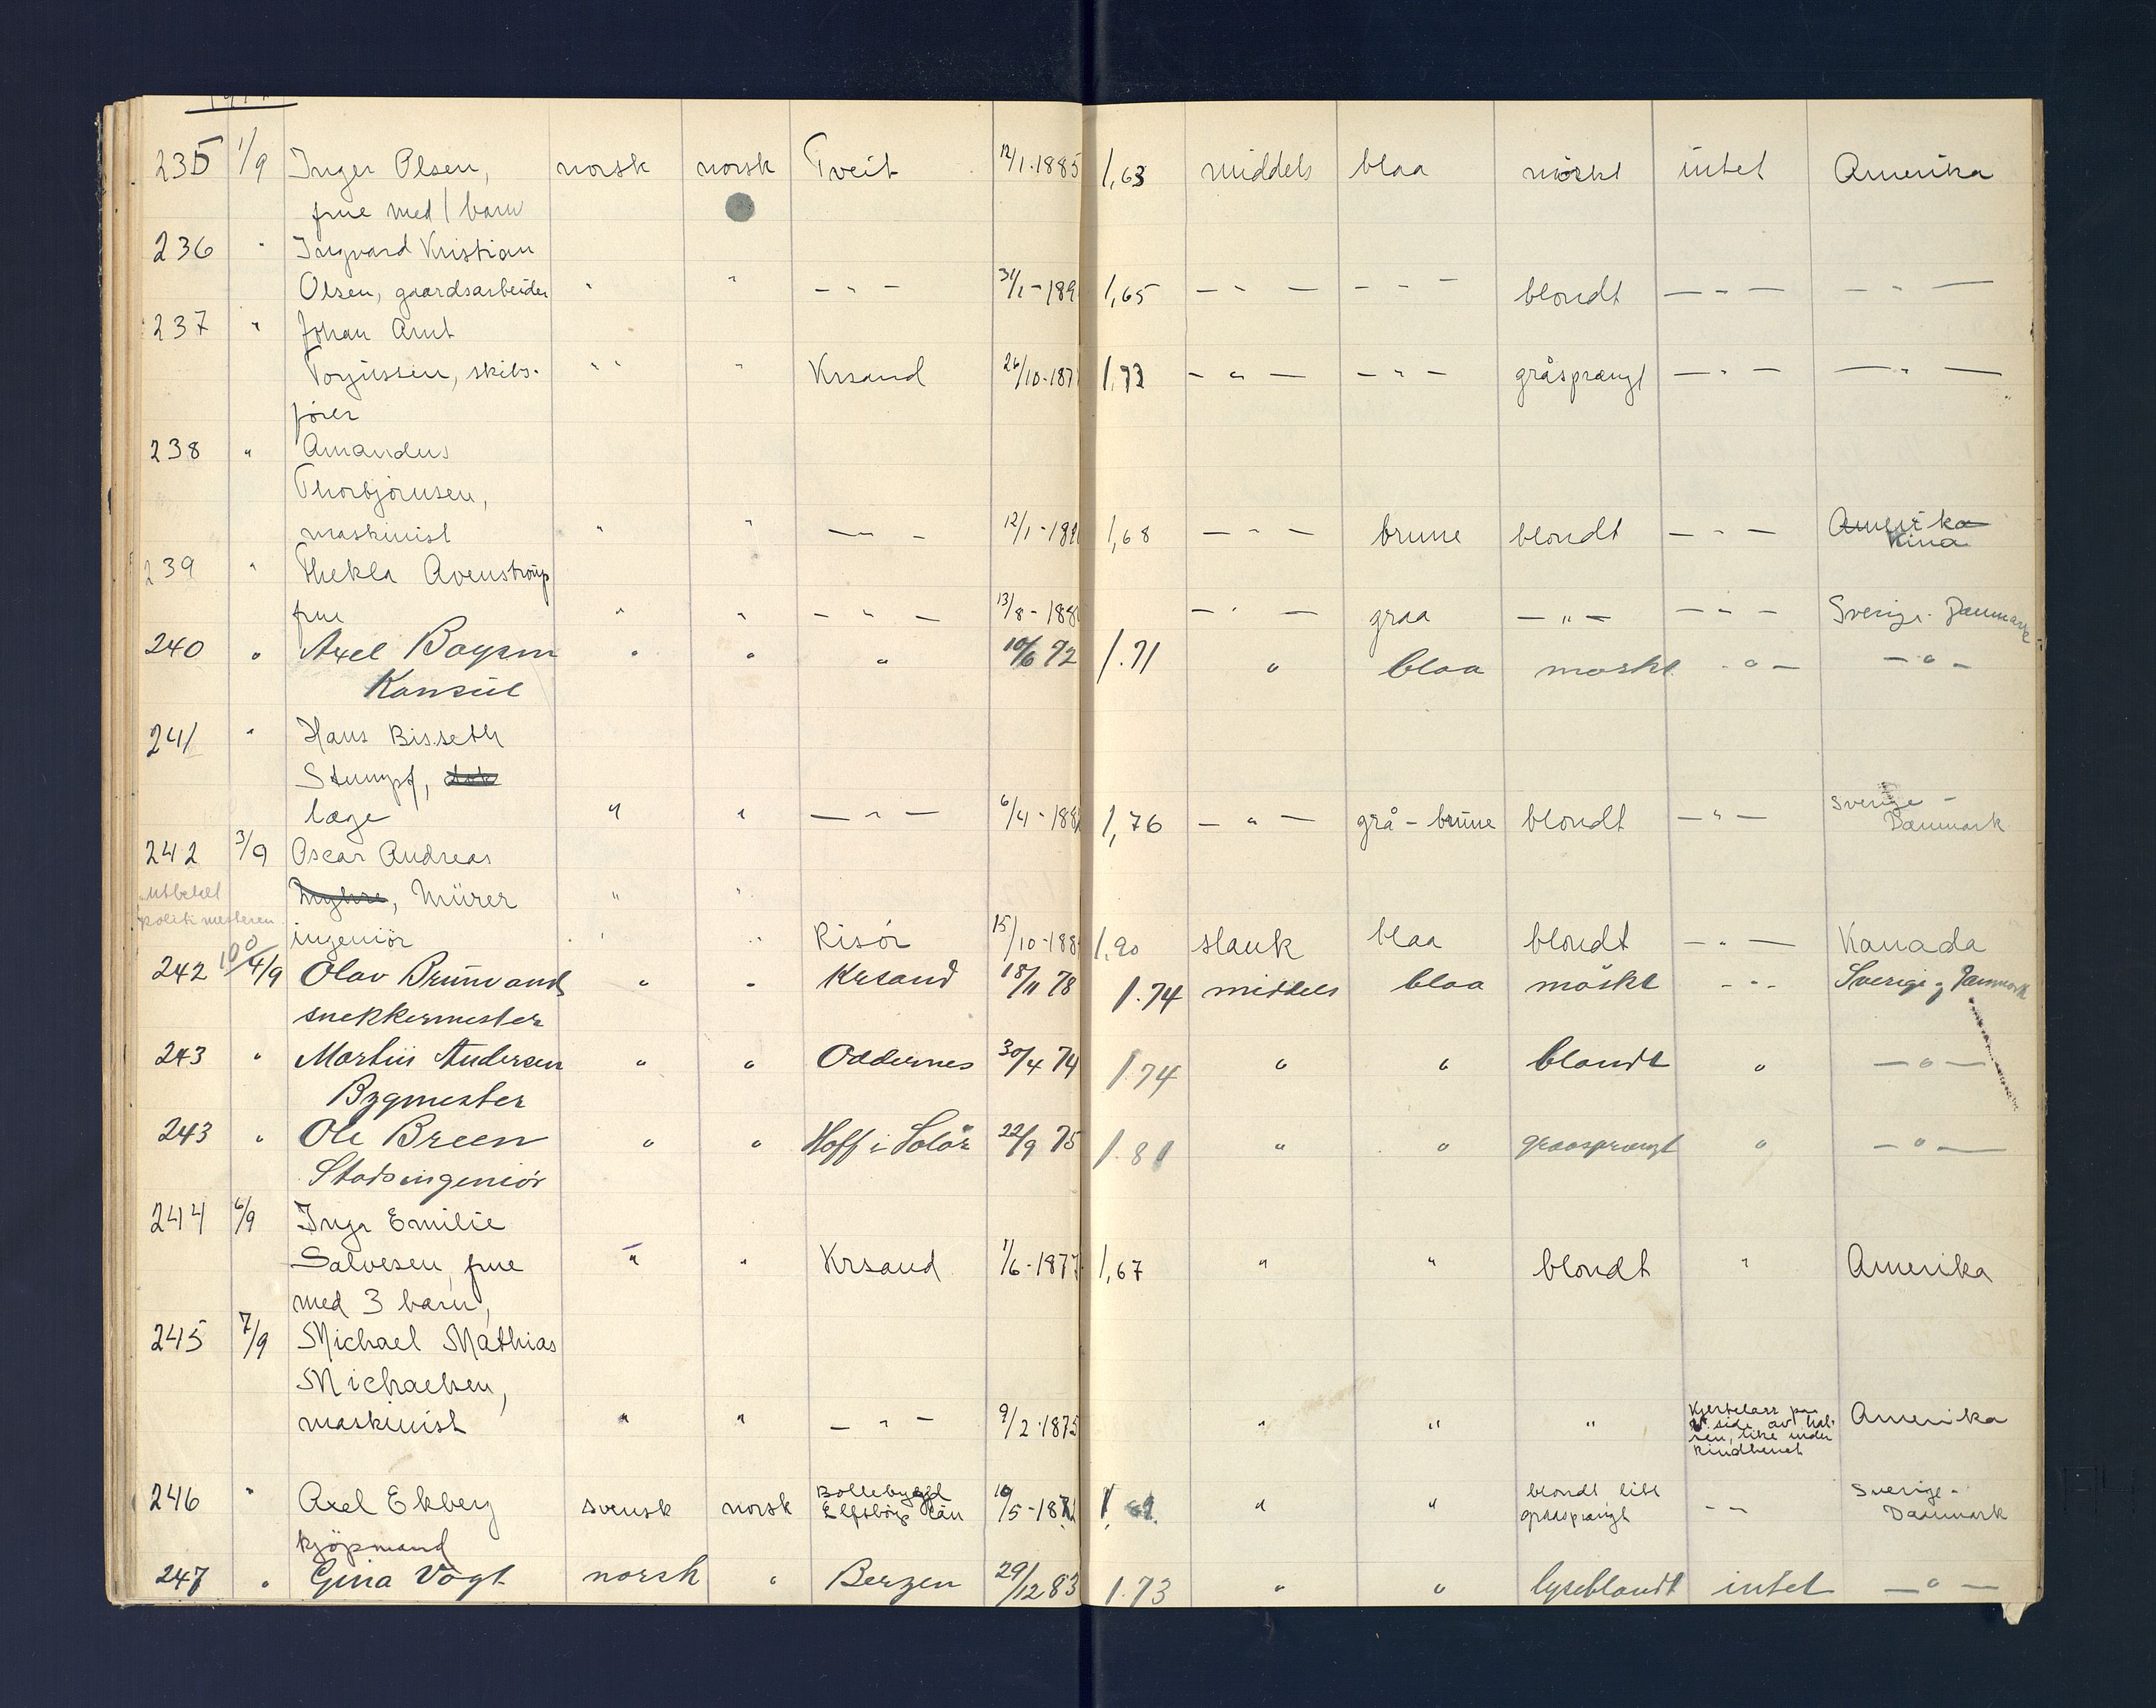 235 1/9 Inger Olsen, norsk norsk Tveit 12/1-1885 1,63 middels blaa mörkt intet Amerika
frue med 1 barn
236 " Ingvard Kristian
Olsen, gaardsarbeider " " - " - 31/1-189 1,65 - " - - " - blondt - " - - " -
237 " Johan Arnt
Torjussen, skibs- " " " Krsand 26/10-187 1,73 - " - - " - gråsprængt - " - - " -
förer
238 " Amandus
Thorbjörnsen,
maskinist " " - " - 12/1-189 1,68 - " - brune blondt - " - Amerika
Kina
239 " Thekla Avenstroup
frue " " - " - 13/8-188 - " - graa - " - - " - Sverige-Danmark
240 " Axel Boysen " " " 10/6 72 1.71 " blaa mörkt - " - - " -
Konsul
241 " Hans Bisseth
Stumpf, dok
læge " " - " - 6/4-188 1,76 - " - grå-brune blondt - " - Sverige-
Danmark
242 3/9 Oscar Andreas
utbetalt Myhre, Mürer " "
politimesteren
ingeniör " " Risör 15/10-188 1,90 slank blaa blondt - " - Kanada
242 4/9 Olav Brunvand " " Krsand 18/11 78 1.74 middels blaa mörkt - " - Sverige og Danmark
snekkermester
243 " Martin Andersen " " Oddernes 30/4 74 1.74 " " blondt " - " -
Bygmester
243 " Ole Breen " " Hoff i Solör 22/9 75 1.81 " " graasprængt " - " -
Stadsingeniör
244 6/9 Inga Emilie
Salvesen, frue " " Krsand 1/6-1877 1,67 " " blondt " Amerika
med 3 barn,
245 7/9 Michael Mathias
Michaelsen,
maskinist " " - " - 9/2-1875 " " " Kjertelarr paa
v. side av hal-
sen, like under
kindbenet Amerika
246 " Axel Ekberg svensk norsk Bollebygd
Elfsborgs län 10/5-187 1, " " blondt litt
graasprængt - " - Sverige-
Danmark
kjöpmand
247 " Gina Vogt norsk " Bergen 29/12 83 1.73 " " lyseblondt intet - " -